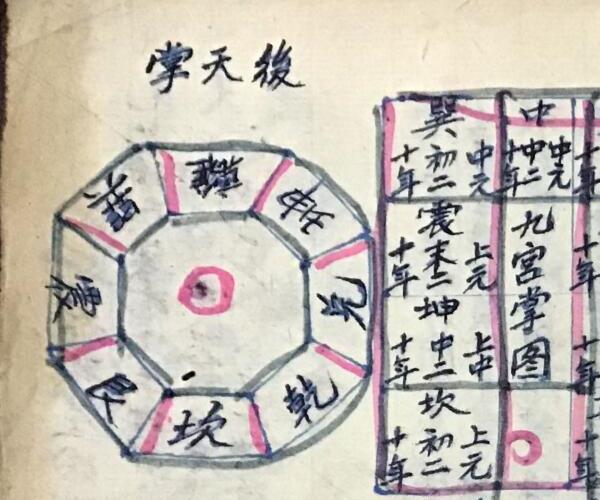 後天掌
離
坤
兌
乾
坎
艮
震
巽
中
中元
中二
十年
九宮掌图
巽
中元
初二
十年
震
上元
末二
十年
坤
上中
中二
十年
坎
上元
初二
十年
十年
十年
十年
十年